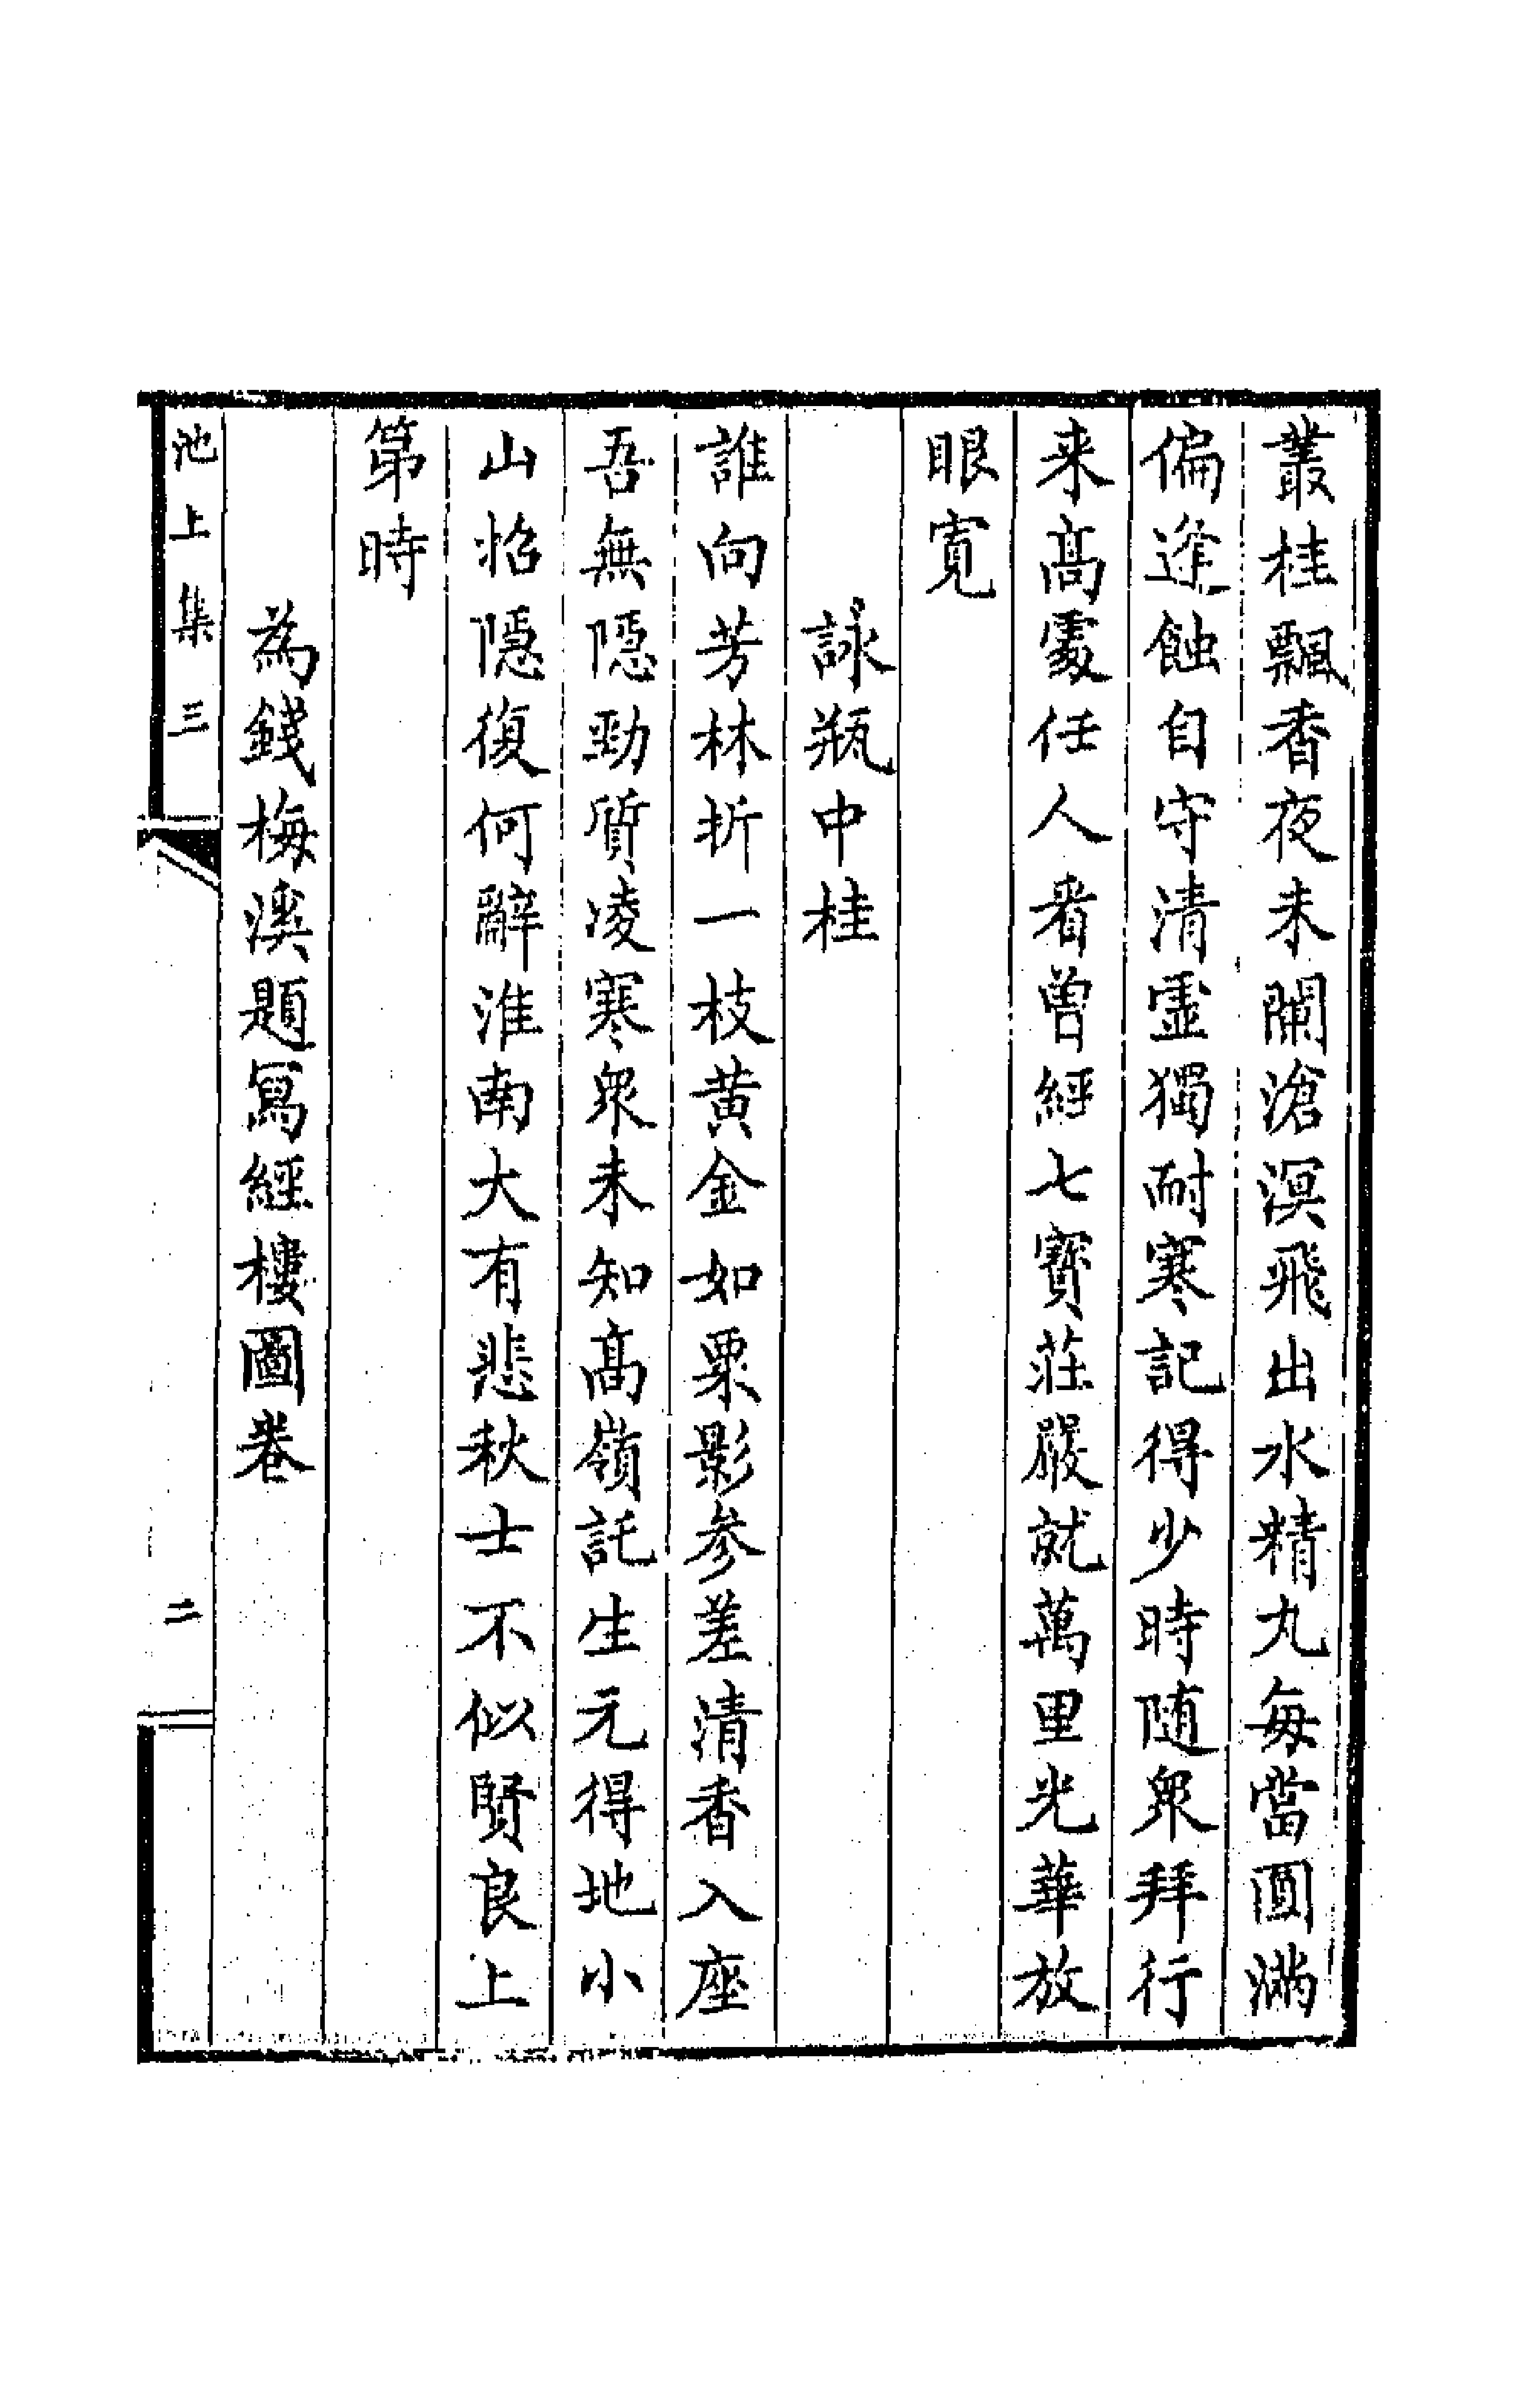 叢桂飄香夜未闌滄溟飛出水精丸每當圓滿
偏逢蝕自守清靈獨耐寒記得少時随衆拜行
来高處任人看曾經七寳莊嚴就萬里光華放
眼寛
詠瓶中桂
誰向芳林折一枝黃金如粟影參差清香入座
吾無隱勁質凌寒衆未知高嶺託生元得地小
山招隱復何辭淮南大有悲秋士不似賢良上
第時
為錢梅溪題寫經樓圖卷
池上集三
二